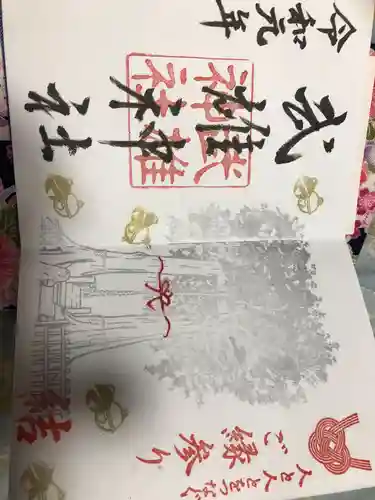 令和元年
武雄神社
武雄神社
人と人とをつなぐ
ご縁参り
結